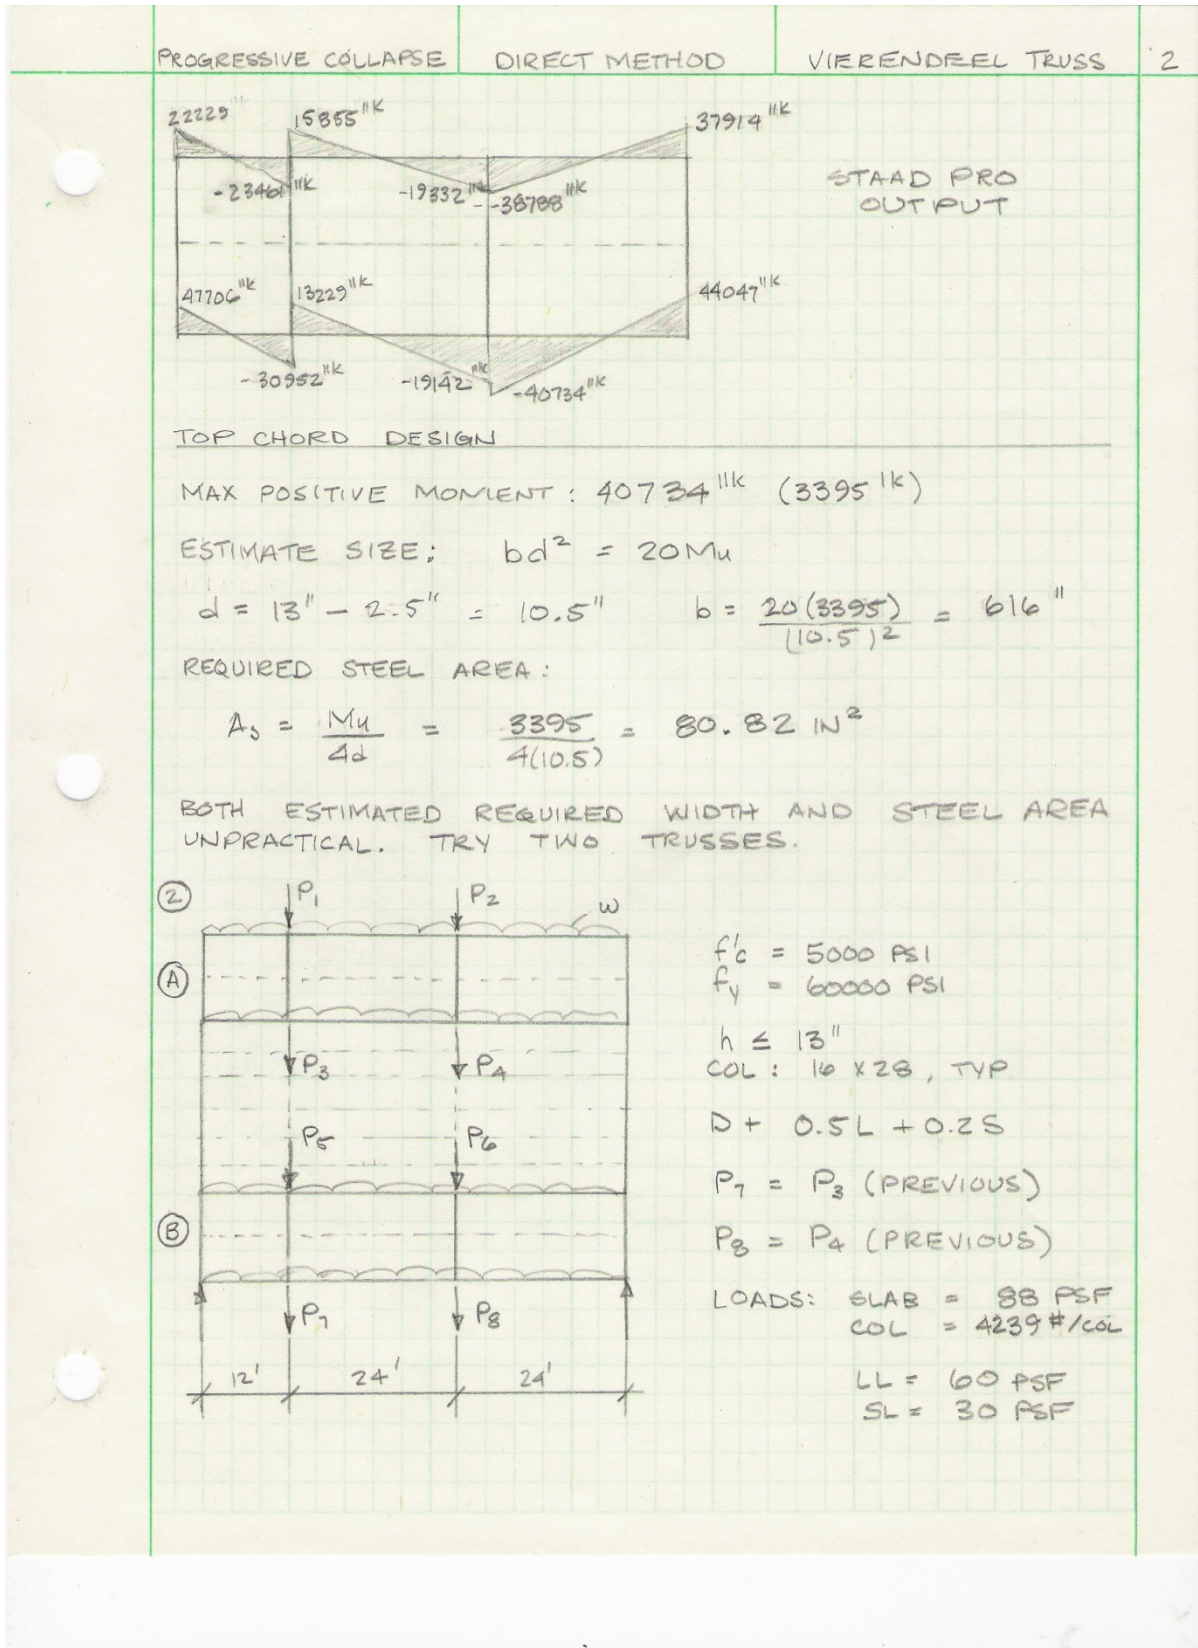 PROGRESSIVE COLLAPSE DIRECT METHOD VIERENDEEL TRUSS 2
22229"K 15855"K 37914"K
-23461"K -19332"K -38788"K
STAAD PRO
OUTPUT
47706"K 13229"K 44047"K
-30952"K -19142"K -40734"K
TOP CHORD DESIGN
MAX POSITIVE MOMENT: 40734"K (3395'K)
ESTIMATE SIZE: bd² = 20Mu
d = 13" - 2.5" = 10.5" b = 20(3395)/(10.5)² = 616"
REQUIRED STEEL AREA:
As = Mu/4d = 3395/4(10.5) = 80.82 IN²
BOTH ESTIMATED REQUIRED WIDTH AND STEEL AREA
UNPRACTICAL. TRY TWO TRUSSES.
2 P1 P2 W
A
P3 P4
P5 P6
B
P7 P8
12' 24' 24'
f'c = 5000 PSI
fy = 60000 PSI
h ≤ 13"
COL: 16 x 28, TYP
D + 0.5L + 0.2S
P7 = P3 (PREVIOUS)
P8 = P4 (PREVIOUS)
LOADS: SLAB = 88 PSF
COL = 4239 #/COL
LL = 60 PSF
SL = 30 PSF